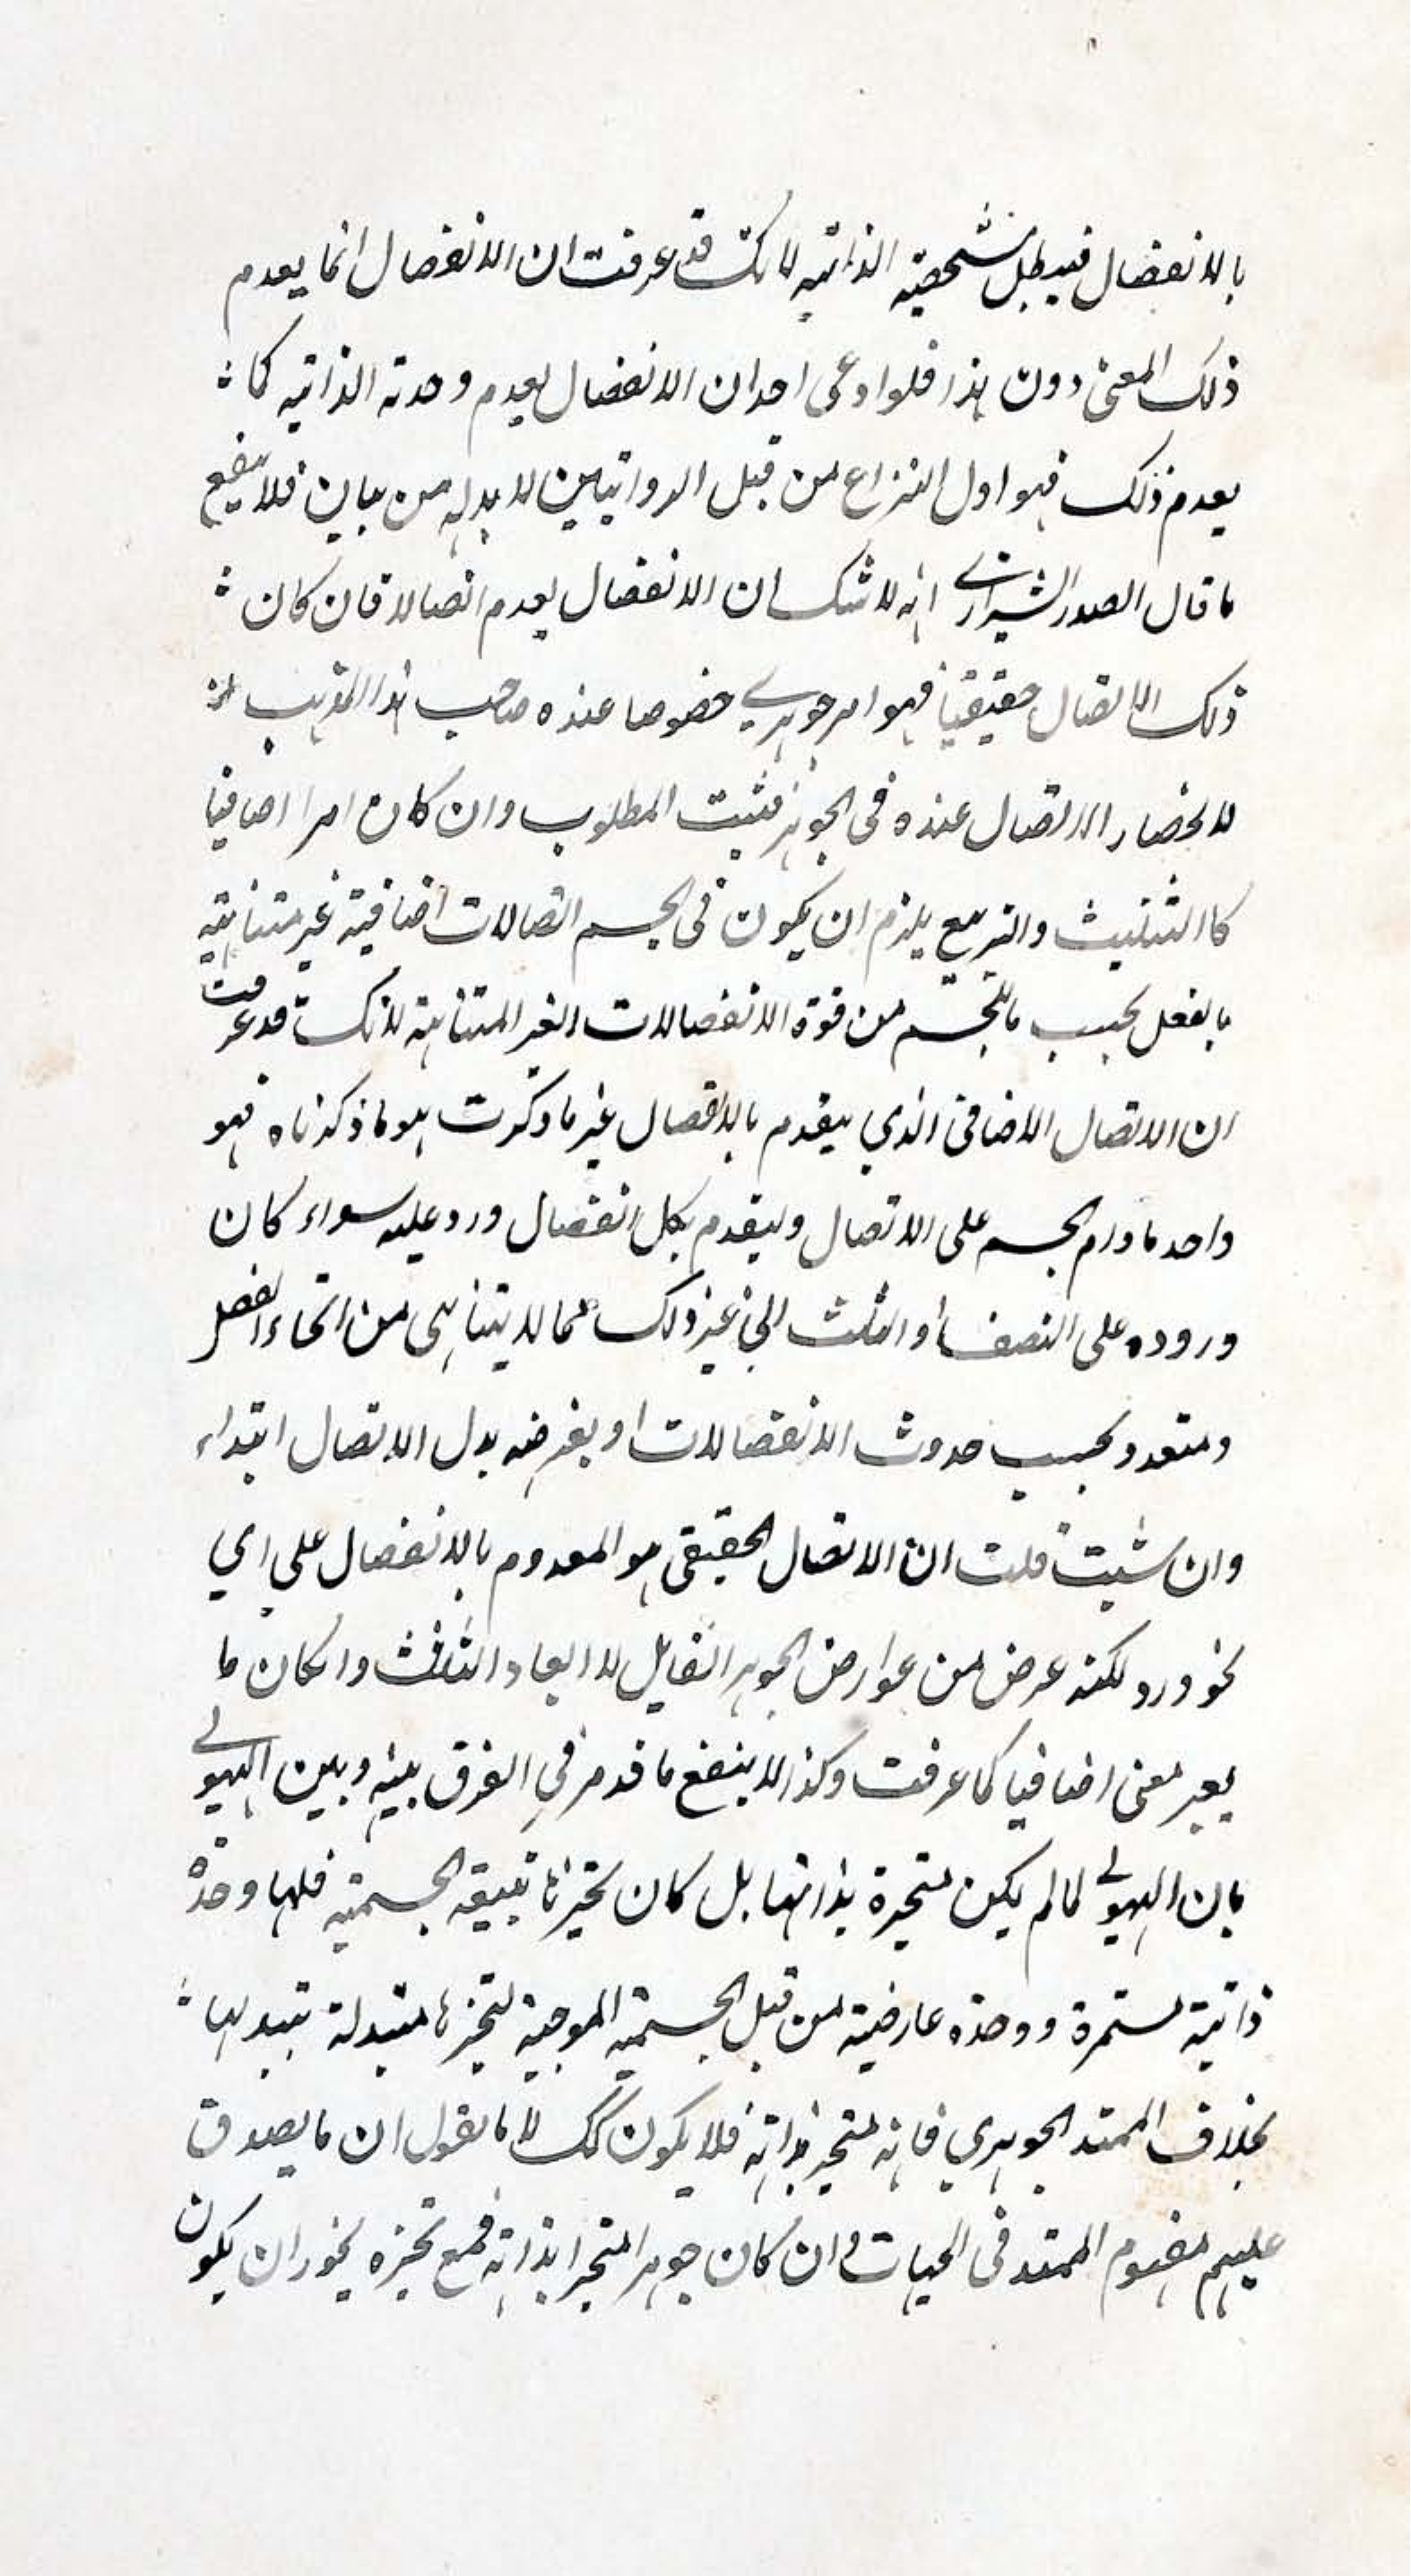 بالانفصال فيبطل شخصيته الذاتية لانك قد عرفت ان الانفصال انما يعدم
ذلك المعنى دون هذا فلو ادعى احد ان الانفصال يعدم وحدته الذاتيه كما
يعدم ذلك فهو اول النزاع من قبل الرواقيين لا بد له من بيان فلا ينفع
ما قال الصدر الشيرازي انه لا شك ان الانفصال يعدم اتصالا فان كان
ذلك الاتصال حقيقيا فهو امر جوهري خصوصا عنده صاحب هذا المذهب
لانحصار الاتصال عنده في الجوهر فثبت المطلوب وان كان امرا اضافيا
كا التثليث والتربيع يلزم ان يكون في الجسم اتصالات اضافية غير متناهية
بالفعل بحسب ما للجسم من قوة الانفصالات الغير المتناهية لانك قد عرفت
ان الاتصال الاضافي الذي ينعدم بالانفصال غير ما ذكرت هو ما ذكرناه فهو
واحد ما دام الجسم على الاتصال وينعدم بكل انفصال ورد عليه سواء كان
وروده على النصف او الثلث الى غير ذلك مما لا يتناهى من انحاء الفصل
ومتعدد بحسب حدوث الانفصالات او بفرضه بدل الاتصال ابتداء
وان شئت قلت ان الاتصال الحقيقي هو المعدوم بالانفصال على اي
نحو ورد لكنه عرض من عوارض الجوهر القابل لا ابعاد الثلاث وا كان ما
يعبر معنى اضافيا كما عرفت وكذا لا ينفع ما قد مر في الفرق بينه وبين الهيولى
بان الهيولى لما لم يكن متحيزة بذاتها بل كان تحيزها بتبعية الجسمية فلها وحدة
ذاتية مستمرة ووحدة عارضية من قبل الجسمية الموجبة لتحيزها متبدلة بتبدلها
بخلاف الممتد الجوهري فانه متحيز بذاته فلا يكون كك لانا نقول ان ما يصدق
عليهم مفهوم الممتد في الجهات وان كان جوهرا متحيزا بذاته فمع تحيزه يجوز ان يكون